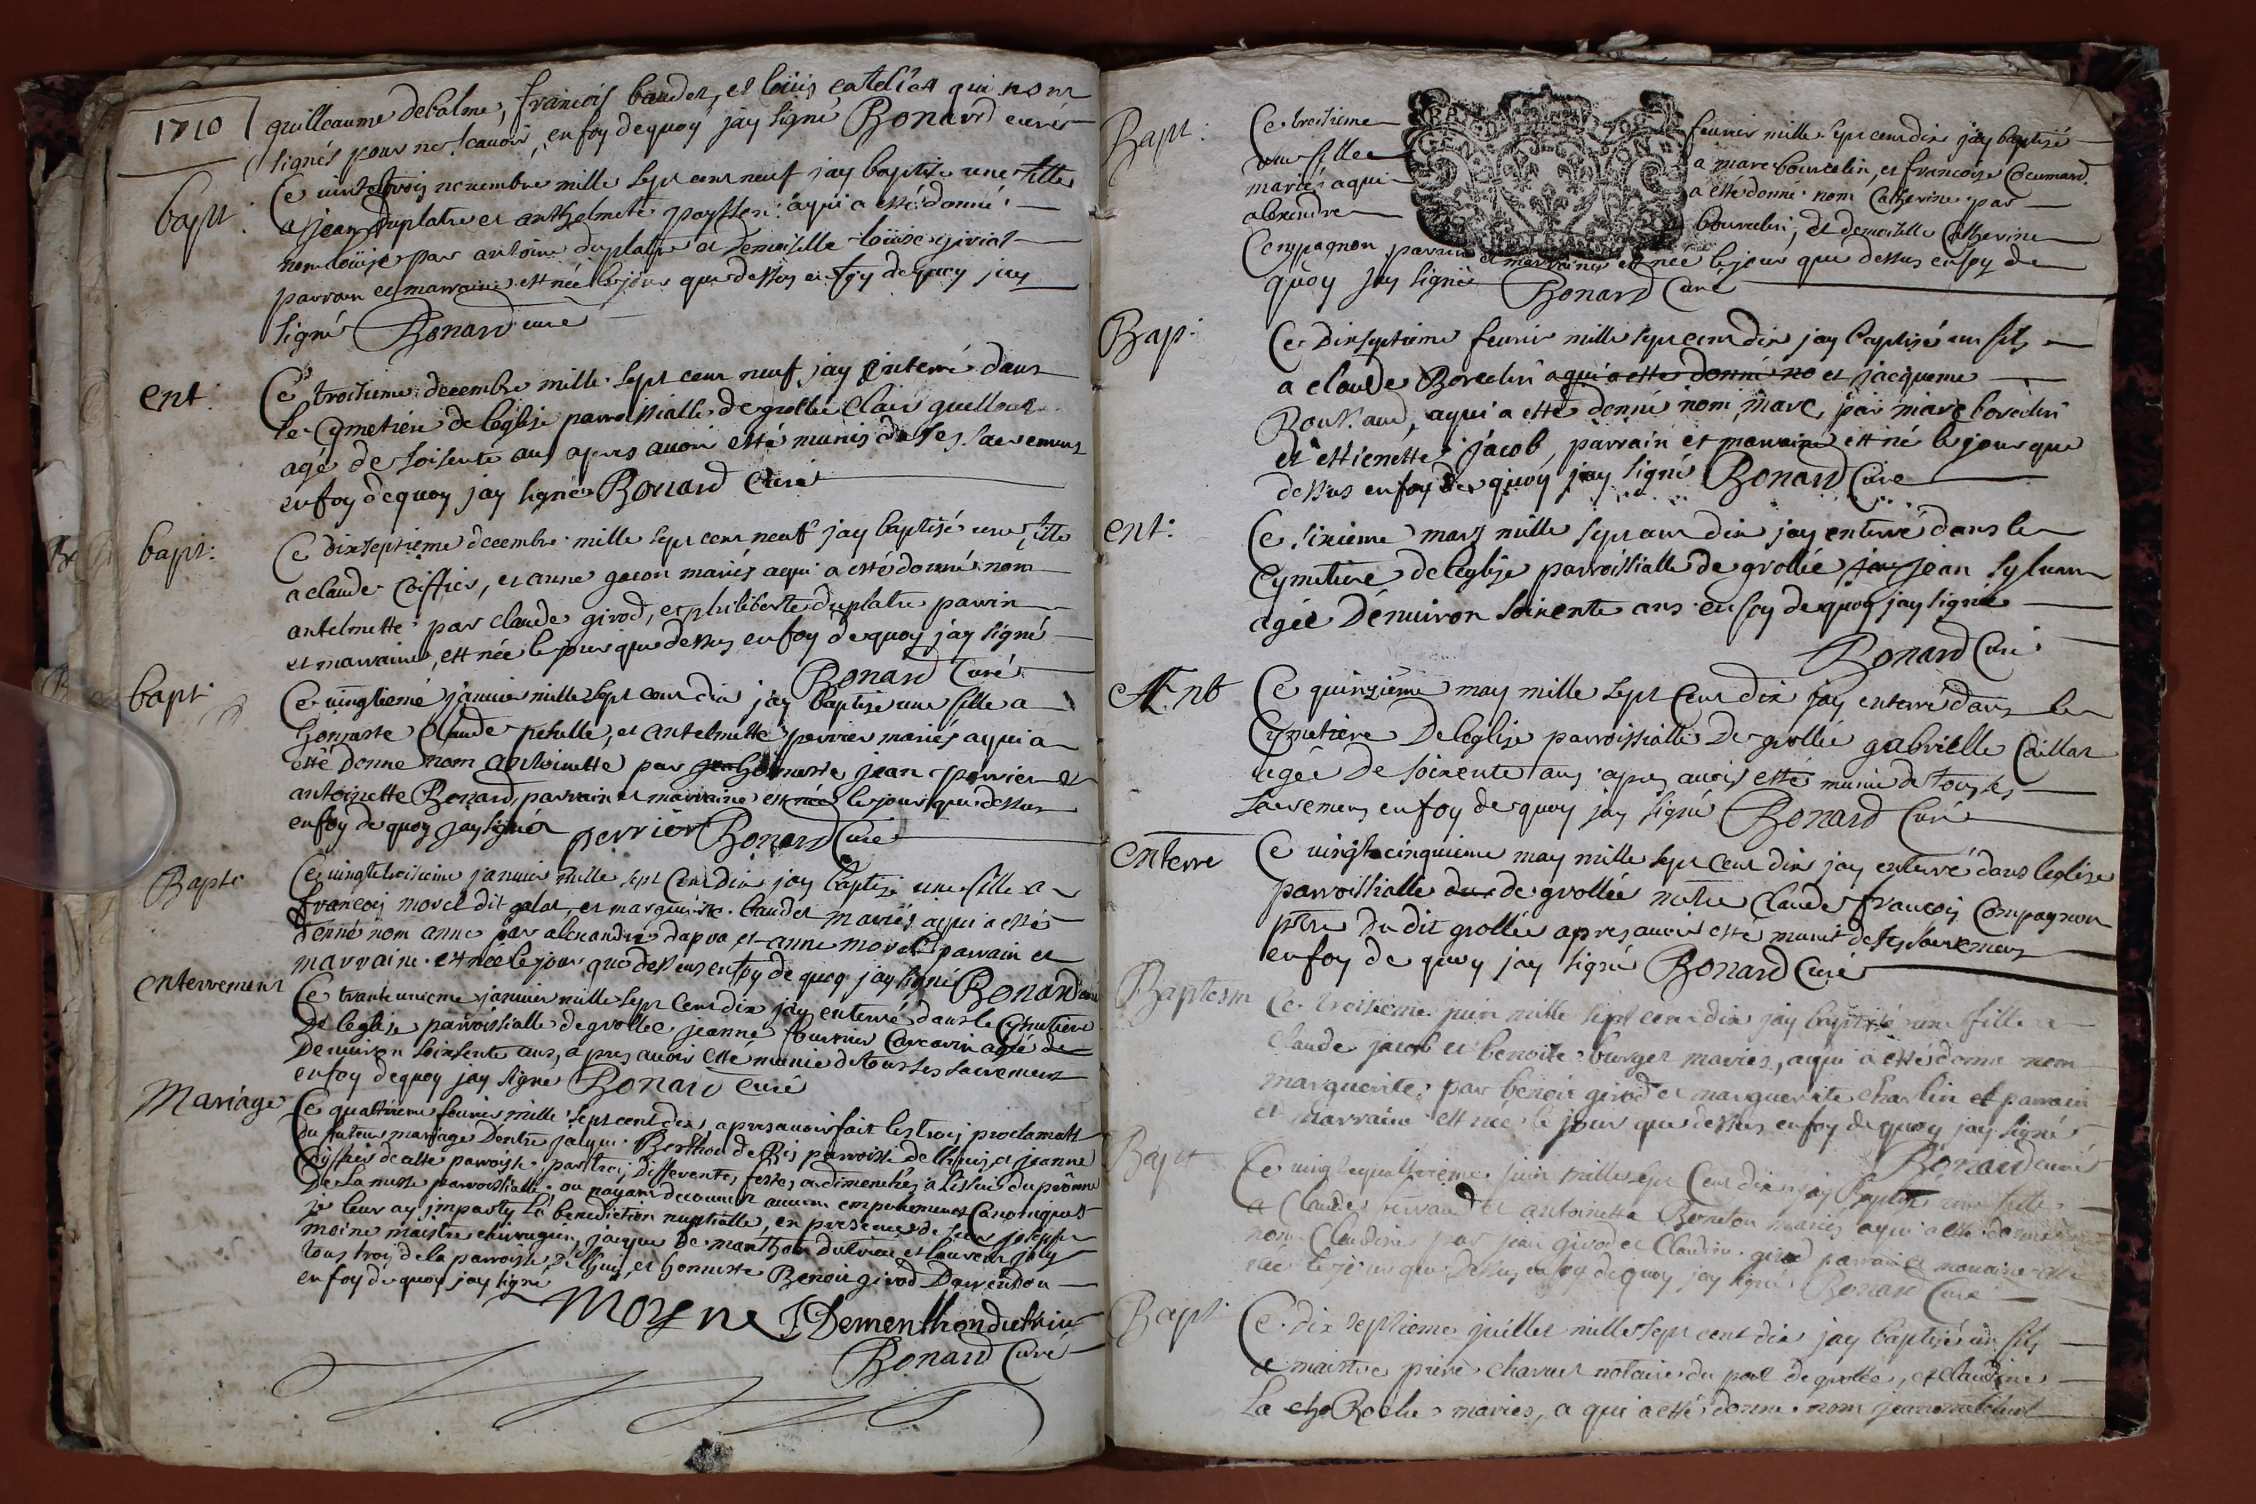 1710
guillaume debalme, francois baudet, et louis catelin qui nont
signés pour ne scavoir, en foy dequoy jay signé Bonard curé
bapt:
Ce vintetrois novembre mille sept cent neuf jay baptisé une fille
a jean duplatre et anthelmete payssen: aqui a esté donné
nom louise par antoine duplatre et demoiselle louise
parrain et marraine est née le jour que dessus en foy de quoy jay
signé Bonard curé
ent:
Ce troisieme decembre mille sept cent neuf jay enterré dans
le cymetiere de leglise parroissialle de grollée clair
agé de soisente ans apres avoir esté munis de ses sacremens
en foy dequoy jay signé Bonard Curé
bapt:
Ce dixseptieme decembre mille sept cent neuf jay baptisé une fille
a claude Coiffier, et anne gacon mariés aqui a esté donné nom
antelmette par claude girod, et philiberte duplatre parrin
et marraine, est née le jour que dessus en foy de quoy jay signé
Bonard Curé
bapt
Ce vingtiemé janvier mille sept cent dix jay baptise une fille a
honneste Claude petelle, et antelmette perrier mariés aqui a
esté donné nom antoinette par honneste jean perrier et
antoinette Bonard, parrain et marraine est née le jour que dessus
en foy de quoy jay signé perrier Bonard Curé
Bapte
Ce vingtetroisieme janvier mille sept cent dix jay baptisé une fille a
francois morel dit galat, et marguerite baudet mariés aqui a esté
donné nom anne par alexandre dapva et anne morel parrain et
marraine est née le jour que dessus en foy de quoy jay signé Bonard curé
enterrement
Ce trante unieme janvier mille sept cent dix jay enterré dans le cymetiere
De leglise parroissialle de grollée jeanne fournier agée de
Denviron soixsente ans, a pres avoir esté munie de tous ses sacremens
en foy dequoy jay signé Bonard Curé
Mariage
Ce quattrieme fevrier mille sept cent dix, apres avoir fait les trois proclamats
du futeur mariage dentre jaque Berthod de Ris parroisse de lhuis, et jeanne
Coiffier de cette parroisse par trois differentes festes, ou dimenches a lissue du prône
De la messe parroissialle ou nayant decouvert aucun empechement Canonique
je leur ay imparty la benediction nuptialle, en presence de sieur joseph
moine maistre chirurgien, jaque de manthon dutrieu et laurent joly
tous trois de la parroisse de lhuis, et honneste Benoit girod
en foy de quoy jay signé
Moyne J Dementhon du trieu
Bonard Curé
Bapt:
Ce troisieme fevrier mille sept cent dix jay baptisé
une fille a marc bourcelin, et francoise Coeumard
mariés aqui a esté donné nom Catherine par
alexandre bourcelin, et demoiselle Catherine
Compagnon parrain et marraine est née le jour que dessus en foy de
quoy jay signé Bonard Curé
Bap:
Ce dixseptieme fevrier mille sept cent dix jay baptisé un fils
a claude Borcelin aqui a esté donné no et jacqueme
Roussaud, aqui a esté donné nom marc, par marc borcelin
et estienette jacob, parrain et marraine est né le jour que
dessus en foy de quoy jay signé Bonard Curé
ent:
Ce sixieme mars mille sept cent dix jay enterré dans le
Cymetiere de leglise parroissialle de grollée jean sylvan
agée Dénviron soixente ans en foy de quoy jay signé
Bonard Curé
Ent
Ce quinzieme may mille sept cent dix jay enterré dans le
Cymetiere De leglise parroissialle De grollée gabrielle Caillat
agée De soixente ans apres avoir esté munie de tous les
sacremens en foy de quoy jay signé Bonard Curé
enterre
Ce vingtecinquieme may mille sept cent dix jay enterré dans leglise
parroissialle de grollée Claude francois Compagnon
ptre Du dit grollée apres avoir esté munit de ses sacremens
en foy de quoy jay signé Bonard Curé
Baptesm
Ce troisieme juin mille sept cent dix jay baptisé une fille a
Claude jacob et benoite burger mariés, aqui a esté donné nom
marguerite, par benoit girod et marguerite charlin et parrain
et marraine est née le jour que dessus en foy de quoy jay signé
Bonard curé
Bapt
Ce vingtequattrieme juin mille sept cent dix jay Baptisé une fille
a Claude et antoinette Berreton mariés aqui a esté donné
nom Claudine par jean girod et Claudine girod parrain et maraine est
née le jour que dessus en foy de quoy jay signé Bonard Curé
Bapt
Ce dix septieme juillet mille sept cent dix jay baptisé un fils
a maistre pierre charvet notaire du port de grollée, et claudine
La Roche mariés, a qui a esté donné nom